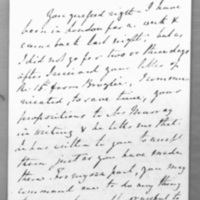 You guessed right - I have
been in London for a week &
came back last night; but as
I did not go for two or three days
after I received your letter of
the 15th from Brughi. I commu-
nicated, to save time, your
propositions to Mr Murray
in writing & he tells me that
he has written to you to accept
them, just as you have made
them. For my own part, you may
command me to do any thing